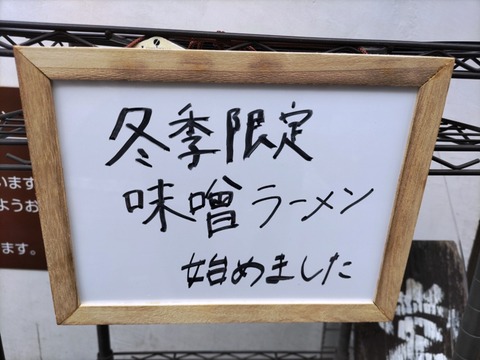 冬季限定
味噌ラーメン
始めました
います。
ようお
ます。